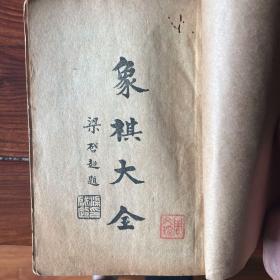 象棋大全
梁啓超題